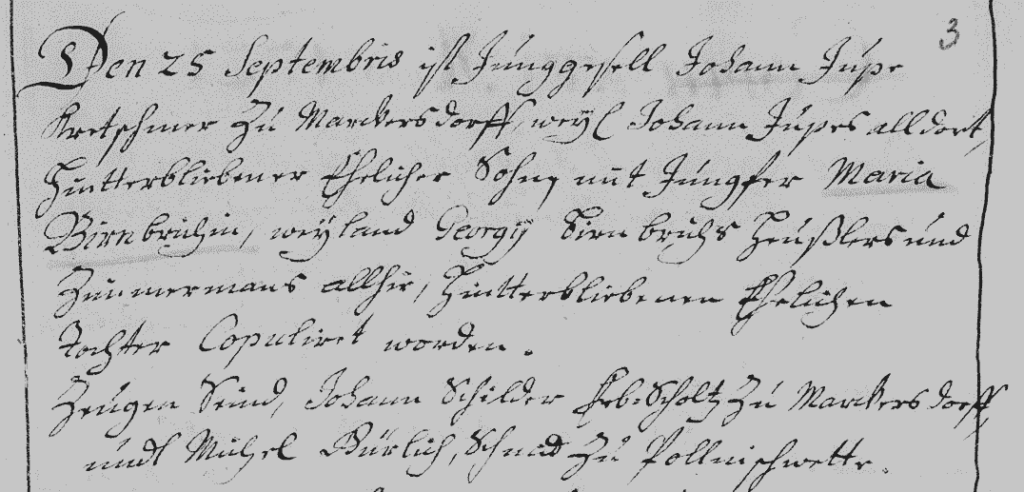 3
Den 25 Septembris ist Junggesell Johann Jupe
Kretschmer zu Marckersdorff, weyl Johann Jupes alldort,
Hintterbliebener Ehelicher Sohn, mit Jungfer Maria
Birnbrichin, weyland Georgy Birnbrichs Heußlers und
Zimmermans allhir, Hintterbliebenen Ehelichen
Tochter Copuliret worden.
Zeugen Seind, Johann Schilder Erb-Scholtz zu Marckersdorff,
undt Michel Schmid zu Pollnischwette.